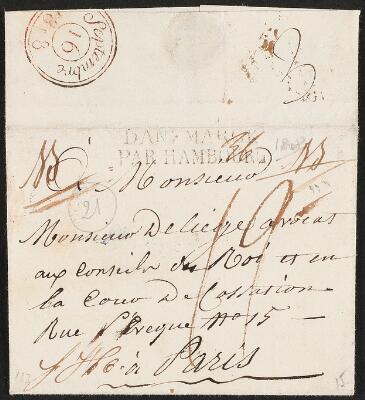 Septembre
16
1818
DANEMARCK
PAR HAMBOURG
A Monsieur
21
Monsieur De Liège avocat
aux Conseils du Roi et en
la Cour De Cassation
Rue l'Evêque No 15 —
à Paris